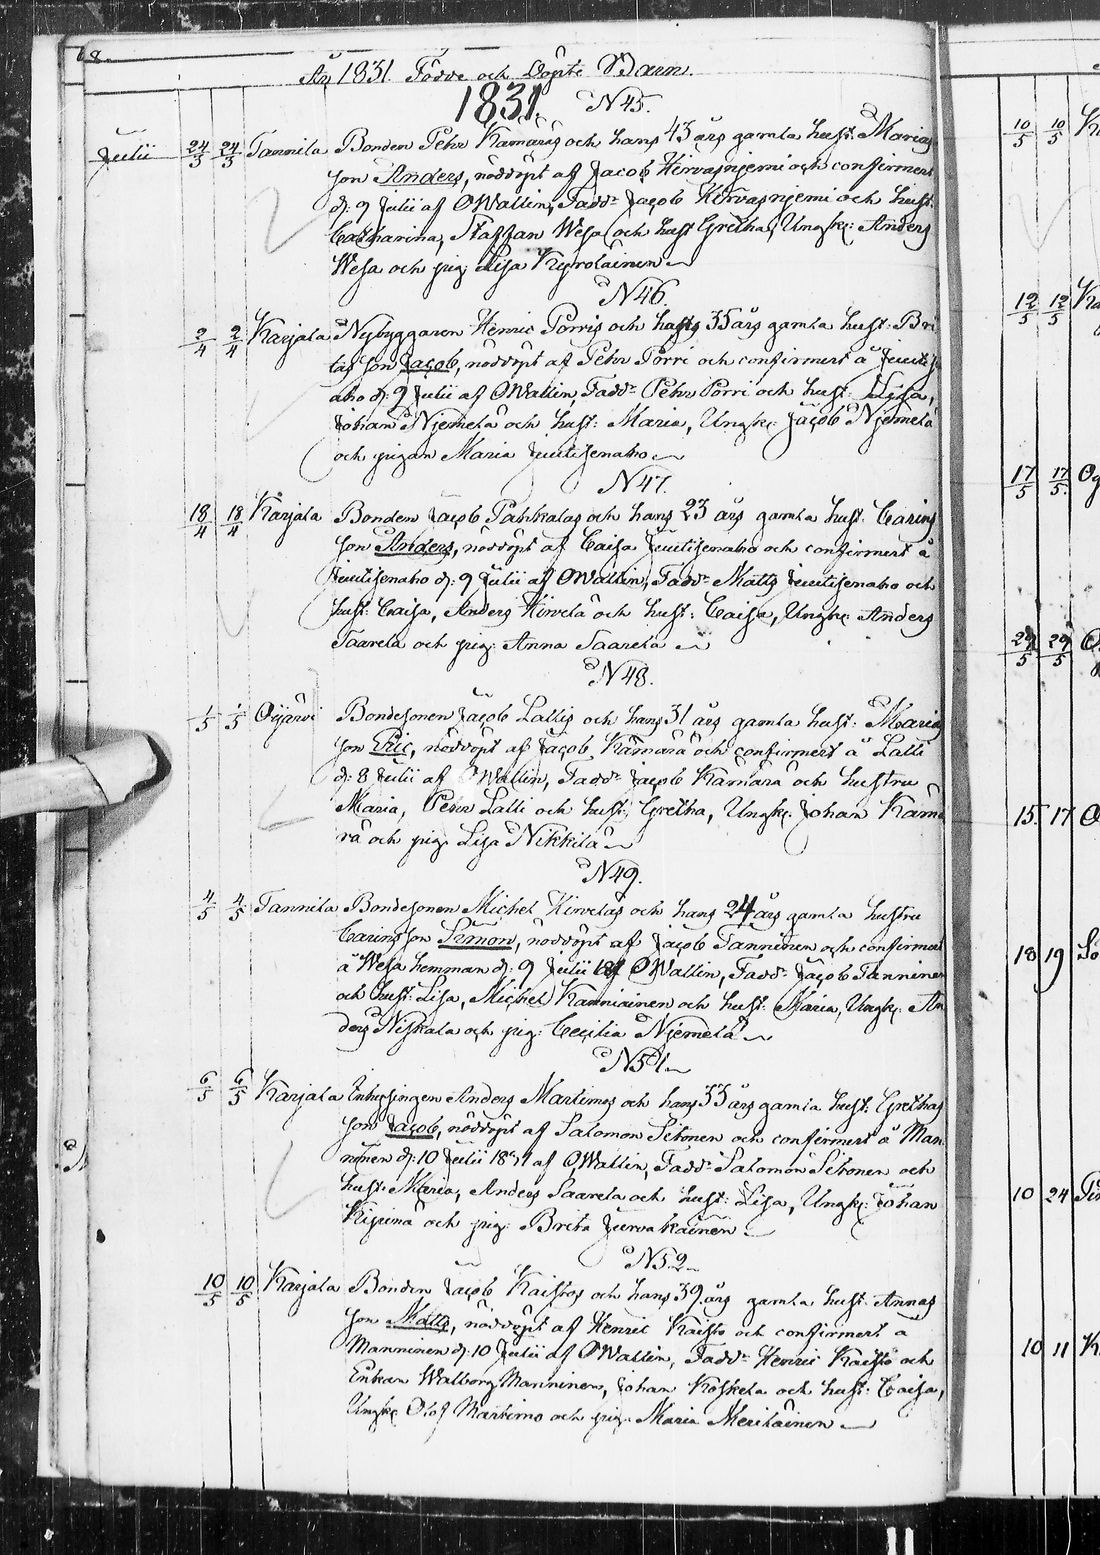 68.
År 1831 Födde och Döpte Barn.
1831. N45.
Julii 24/3 24/3 Tannila Bonden Pehr Kämäräs och hans 43 års gamla hust: Marias
son Anders, nöddöpt af Jacob Hirvasnjemi och confirmert
d: 9 Julii af OWallin, Fadd: Jacob Hirvasnjemi och hust:
Catharina, Staffan Wesa och hust Gretha, Ungk: Anders
Wesa och pig: Lisa Kyrölainen
N46.
2/4 2/4 Karjala Nybyggaren Henric Porris och hans 35 års gamla hust: Bri
tas son Jacob, nöddöpt af Pehr Porri och confirmert å Juutisen
aho d: 9 Julii af OWallin, Fadd: Pehr Porri och hust: Lisa,
Johan Njemelä och hust: Maria, Ungk: Jacob Njemelä
och pigan Maria Juutisenaho
N47.
18/4 18/4 Karjala Bonden Jacob Pahkalas och hans 23 års gamla hust: Carins
son Anders, nöddöpt af Caisa Juutisenaho och confirmert å
Juutisenaho d: 9 Julii af OWallin, Fadd: Matts Juutisenaho och
hust: Caisa, Anders Hirvelä och hust: Caisa, Ungk: Anders
Saarela och pig: Anna Saarela
N48.
1/5 1/5 Oijärvi Bondesonen Jacob Lallis och hans 31 års gamla hust: Marias
son Eric, nöddöpt af Jacob Kämärä och confirmert å Lalli
d: 8 Julii af OWallin, Fadd: Jacob Kämärä och hustru
Maria, Pehr Lalli och hust: Gretha, Ungk: Johan Kämä
rä och pig: Lisa Nikkilä
N49.
4/5 4/5 Tannila Bondesonen Michel Hirvelas och hans 24 års gamla hustru
Carins son Simon, nöddöpt af Jacob Tanninen och confirmert
å Wesa hemman d: 9 Julii af OWallin, Fadd: Jacob Tanninen
och hust: Lisa, Michel Kanniainen och hust: Maria, Ungk: An
ders Niskala och pig: Cecilia Njemelä
N51.
6/5 6/5 Karjala Inhysingen Anders Martimos och hans 33 års gamla hust: Grethas
son Jacob, nöddöpt af Salomon Sitonen och confirmert å Man
ninen d: 10 Julii 1831 af OWallin, Fadd: Salomon Sitonen och
hust: Maria, Anders Saarela och hust: Lisa, Ungk: Johan
Kipinä och pig: Brita Jurvakainen
N52.
10/5 10/5 Karjala Bonden Jacob Kaistos och hans 39 års gamla hust: Annas
son Matts, nöddöpt af Henric Kaisto och confirmert å
Manninen d: 10 Julii af OWallin, Fadd: Henric Kaisto och
Enkan Walborg Manninen, Johan Koskela och hust: Caisa,
Ungk: Olof Martimo och pig: Maria Meriläinen
10/5 10/5 K
12/5 12/5 Ka
17/5 17/5
29/5 29/5
15. 17 O
18 19 Sö
10 24
10 11 K